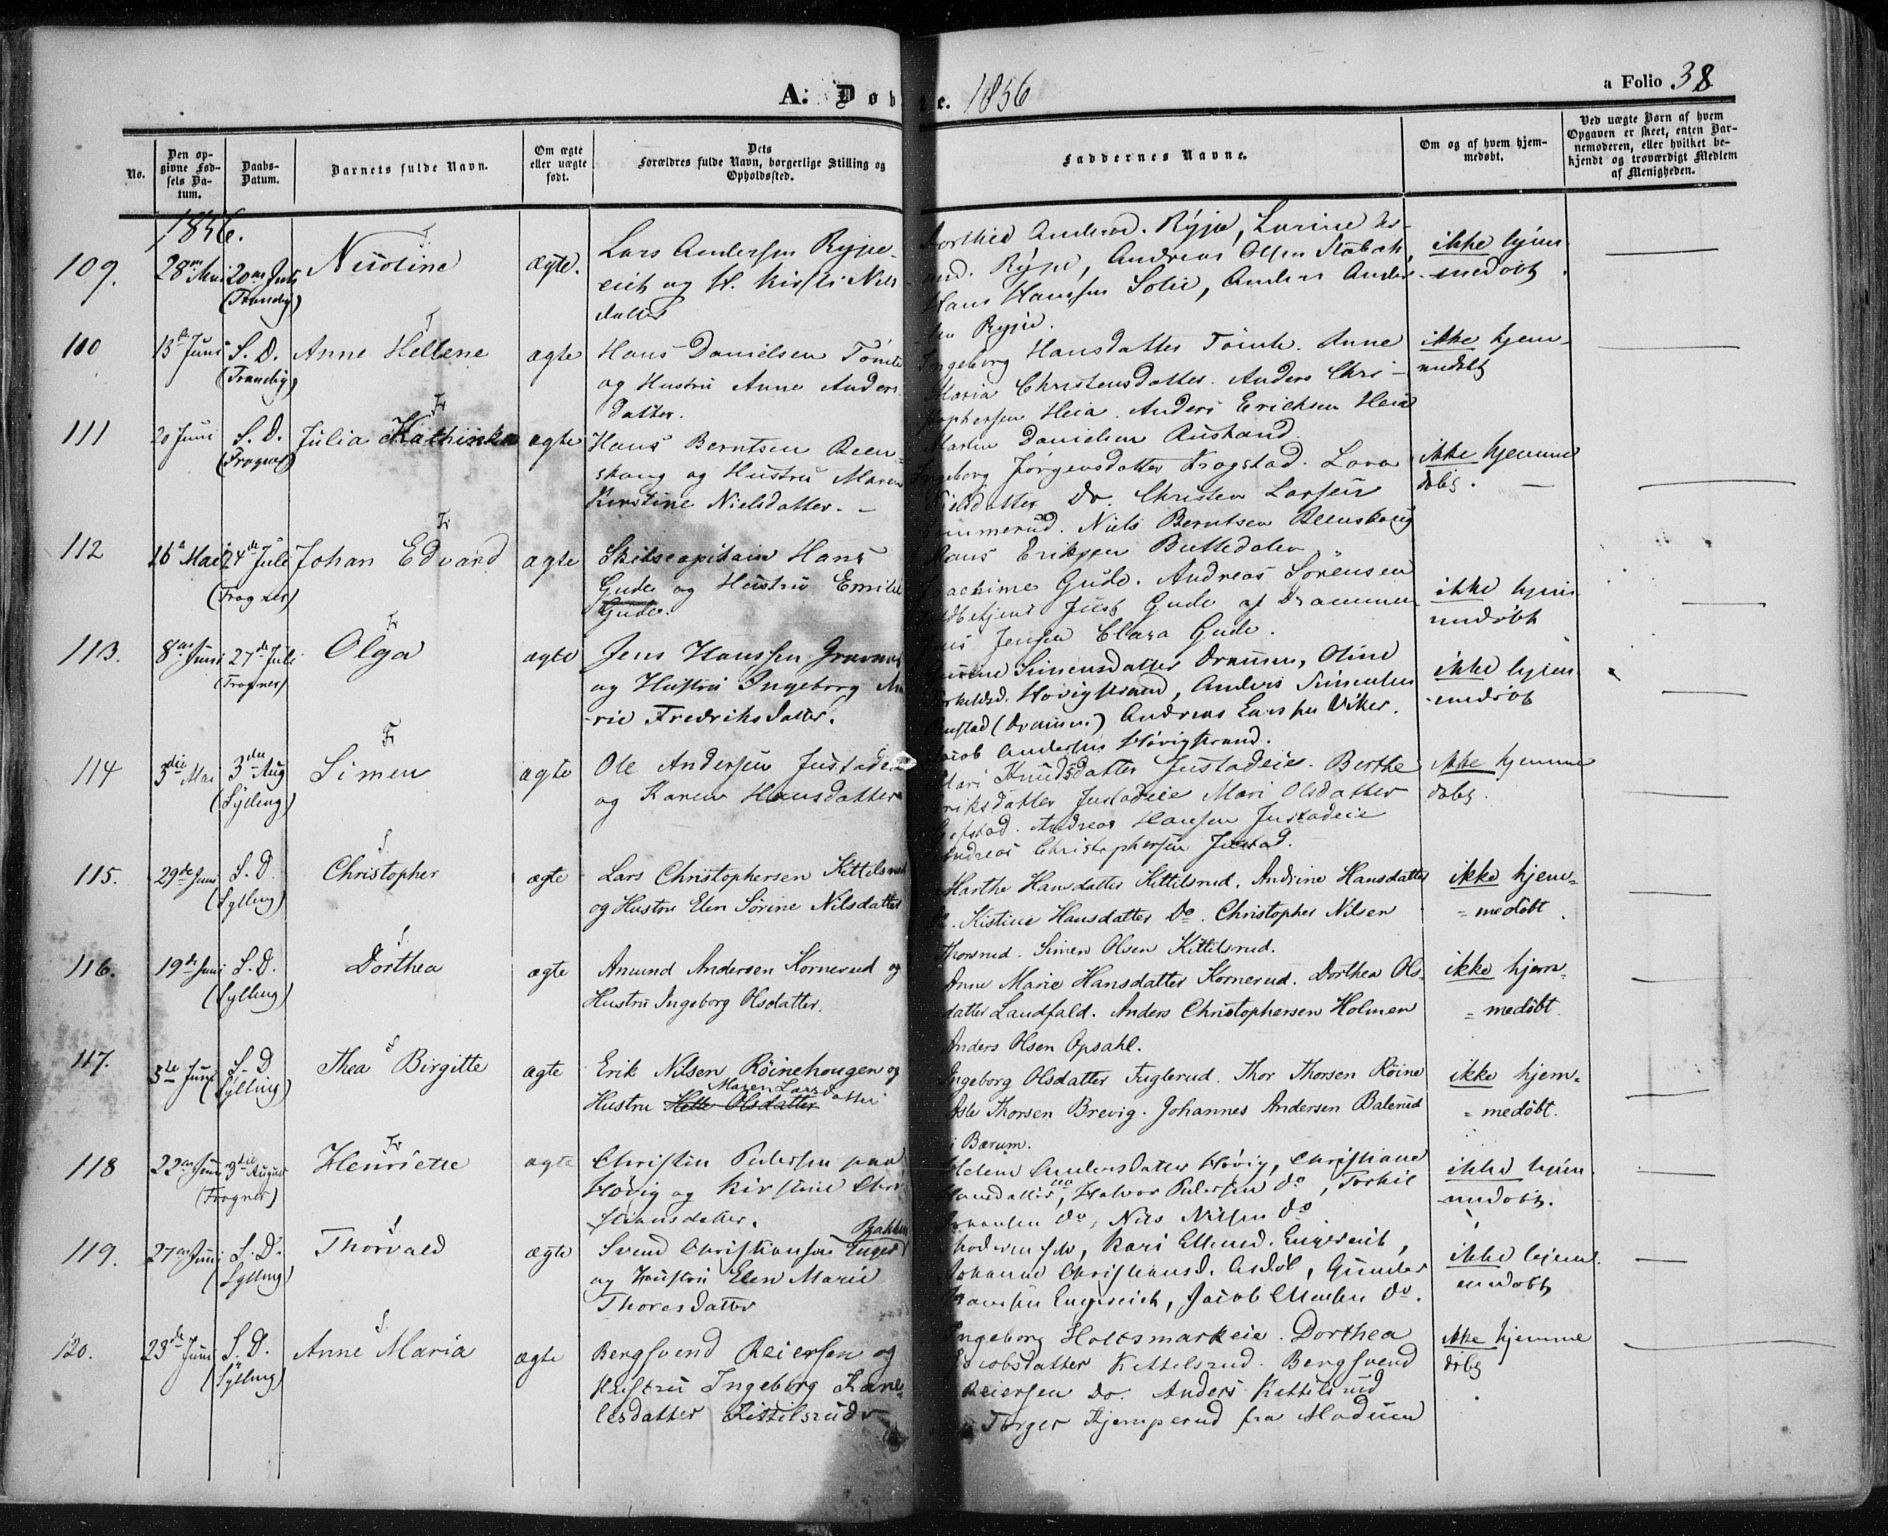 A: Døb
e. 1856
a Folio 38
No.
Den opgivne Fødsels Datum.
Daabs-Datum.
Barnets fulde Navn.
Om ægte eller uægte født.
Dets Forældres fulde Navn, borgerlige Stilling og Opholdssted.
Faddernes Navne.
Om og af hvem hjemmedøbt.
Ved uægte Børn af hvem Opgaven er skeet, enten Barnemoderen, eller hvilket bekjendt og troværdigt Medlem af Menigheden.
1856.
109.
(Tranby)
ægte.
Lars Andersen Rype-
eie og H. Kirsti Nils
datter
Rype, Andreas Olsen Stabæk,
Hans Hanssen Solie, Anders Ander-
ikke hjem
medøbt
110
13de Juni
S. D.
(Tranby)
T
Anne Hellene
ægte
Hans Danielsen Tømte
og Hustru Anne Anders
datter.
Ingeborg Hansdatter Tømte. Anne
Maria Christensdatter. Anders Chri-
stophersen Heia. Anders Ericksen Heia
Martin Danielsen Austrand
ikke hjem-
medøbt
111
20 Juni
S. D.
(Frogner)
Fr
Julia Kathinka
ægte
Hans Berntsen Reen-
skoug og Hustru Maren
Kirstine Nielsdatter. -
Ingeborg Jørgensdatter Krogstad. Lara
Do. Christen Larsen
Niels Berntsen Reenskoug
Hans Eriksen Buttedalen
ikke hjemme
døbt. -
112
16de Mai
24de Juli
(Frogner)
Fr
Johan Edvard
ægte
Skibscapitain Hans
Gude og Hustru Emilie
Gude.
Gude. Andreas Sørensen
Just Gude af Drammen
Jensen Clara Gude.
ikke hjem-
medøbt
113.
8de Juni
27de Juli
(Frogner)
Fr
Olga
ægte
Jens Hanssen Gravnes
og Hustru Ingeborg Ma
rie Fredriksdatter.
Simensdatter Drammen, Oline
Høvigstrand, Anders Simensen
(Drammen) Andreas Larssen Viker.
Jacob Andersen Høvigstrand.
ikke hjem-
medøbt
114
3die Mai
3die Aug
(Sylling)
Fr
Simen
ægte
Ole Andersen Justadeie
og Karen Hansdatter
Mari Knudsdatter Justadeie. Berthe
Eriksdatter Justadeie Mari Olsdatter
Andreas Hansen Justadeie
Andreas Christophersen Justad.
ikke hjemme
døbt.
115.
29de Juni
S. D.
(Sylling)
S.
Christopher
ægte
Lars Christophersen Kittelsrud
og Hustru Elen Sørine Nilsdatter
Marthe Hansdatter Kittilsrud. Andrine Hansdatter
Do. Kistine Hansdatter Do. Christopher Nilsen
Thorsrud. Simen Olsen Kittilsrud.
ikke hjem-
= medøbt.
116.
19de Juni
S. D.
(Sylling)
S.
Dorthea
ægte
Amund Andersen Kornerud og
Hustru Ingeborg Olsdatter.
Anne Marie Hansdatter Kornerud. Dorthea Ols-
datter Landfald. Anders Christophersen Holmen
Anders Olsen Opsahl.
ikke hjem-
= medøbt.
117.
5te Juni
S. D
(Sylling)
S
Thea Birgitte
ægte
Erik Nilsen Röinehougen og
Maren Larsdatter
Hustru Helle Olsdatter
Ingeborg Olsdatter Fuglerud. Thor Thorsen Röine
Asle Thorsen Brevig. Johannes Andersen Balerud
i Bærum.
ikke hjem-
= medøbt.
118
22de Juni
3die August
(Frogner)
Fr
Henriette
ægte
Christen Pedersen paa
Høvig og Kirstine Chri-
stiansdatter.
Helene Andersdatter Høvig, Christiane
Hansdatter do, Halvor Pedersen do, Torkil
Johansen do, Nils Nilsen do
ikke hjem-
medøbt.
119.
27de Juni
S. D.
(Sylling)
S
Thorvald
ægte
Bakken
Svend Christiansen Enger
og Hustru Elen Marie
Thoresdatter
Moderen selv, Kari Ellensd. Engereie,
Johanne Christiansd. Asdøl, Gunder
Hansen Engereie, Jacob Ellensen do.
ikke hjem.
medøbt
120.
23de Juni
S. D.
(Sylling)
S.
Anne Maria
ægte
Bergsvend Reiersen og
Hustru Ingeborg Kane-
lesdatter Kittilsrud
Ingeborg Holtsmarkeie. Dorthea
Jacobsdatter Kittelsrud. Bergsvend
Reiersen Do. Anders Kittilsrud
Torger Kjemperud fra Modum
ikke hjemme
døbt